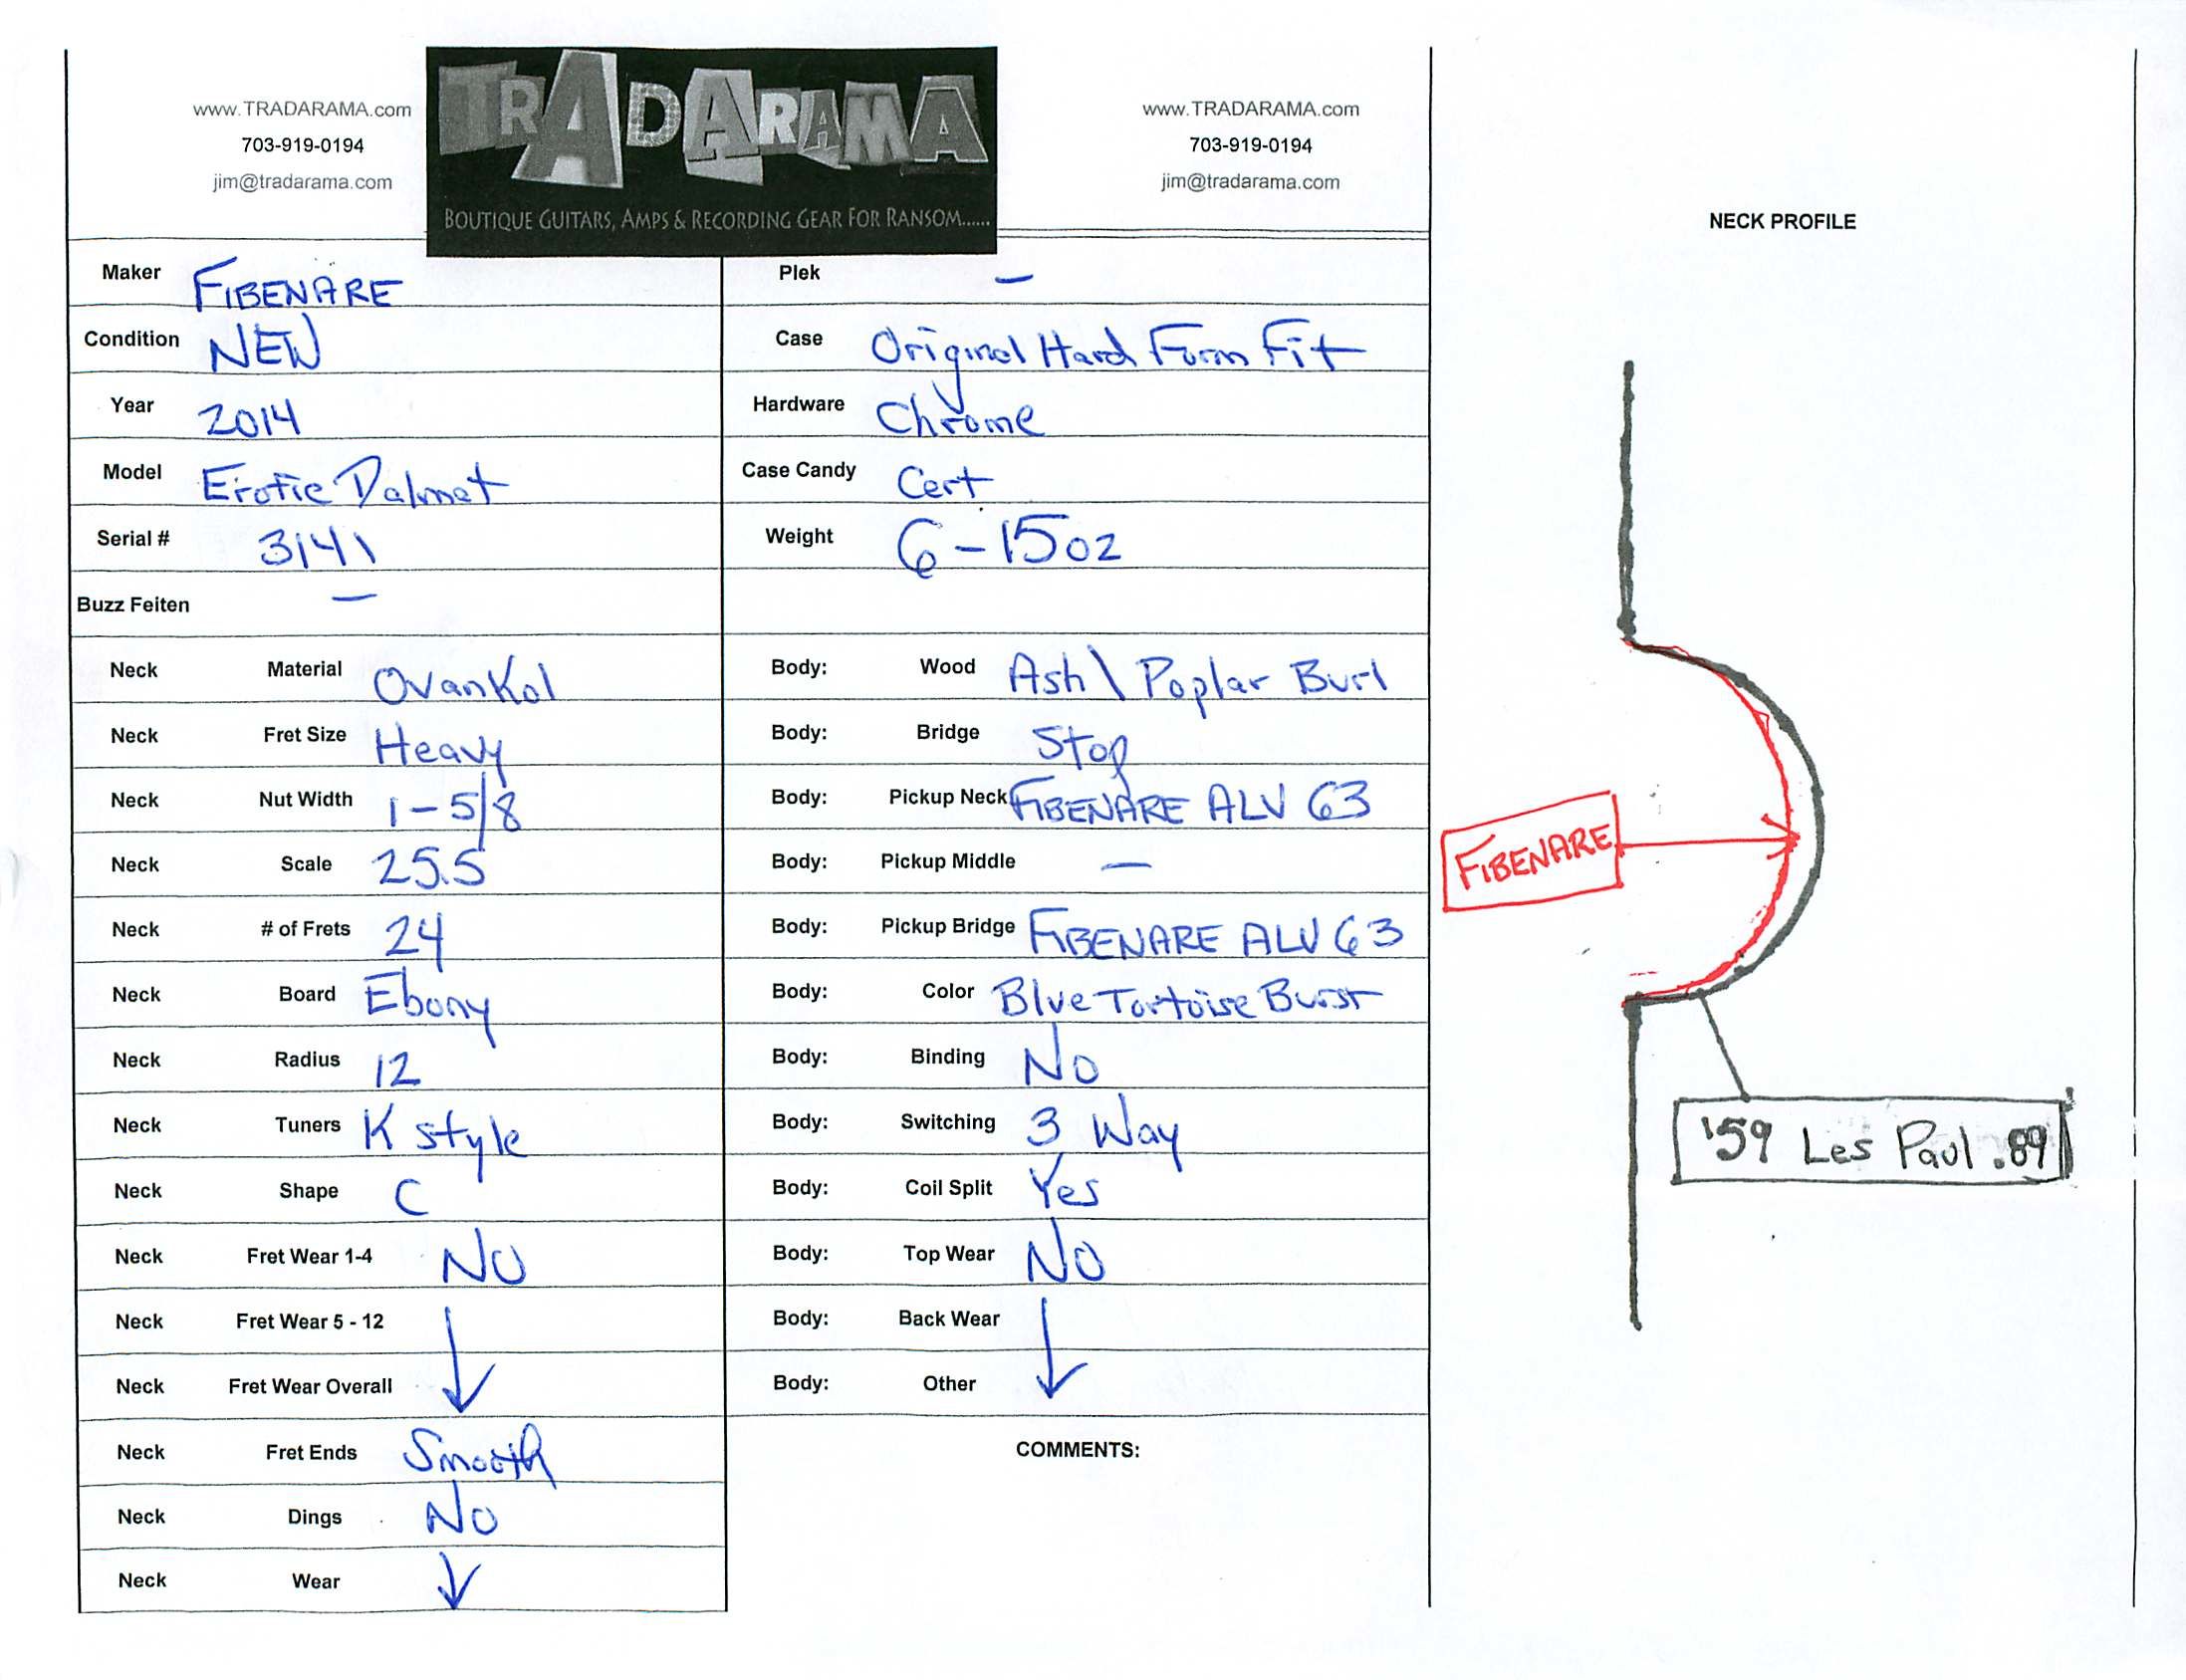 www.TRADARAMA.com
703-919-0194
jim@tradarama.com
TRADARAMA
BOUTIQUE GUITARS, AMPS & RECORDING GEAR FOR RANSOM......
www.TRADARAMA.com
703-919-0194
jim@tradarama.com
Maker FIBENARE
Condition NEW
Year 2014
Model Erotic Dalmat
Serial # 3141
Buzz Feiten —
Neck Material Ovankol
Neck Fret Size Heavy
Neck Nut Width 1-5/8
Neck Scale 25.5
Neck # of Frets 24
Neck Board Ebony
Neck Radius 12
Neck Tuners K style
Neck Shape C
Neck Fret Wear 1-4 NO
Neck Fret Wear 5 - 12
Neck Fret Wear Overall
Neck Fret Ends Smooth
Neck Dings No
Neck Wear
Plek —
Case Original Hard Form Fit
Hardware Chrome
Case Candy Cert
Weight 6-15oz
Body: Wood Ash \ Poplar Burl
Body: Bridge Stop
Body: Pickup Neck FIBENARE ALV 63
Body: Pickup Middle —
Body: Pickup Bridge FIBENARE ALV 63
Body: Color Blue Tortoise Burst
Body: Binding No
Body: Switching 3 Way
Body: Coil Split Yes
Body: Top Wear NO
Body: Back Wear
Body: Other
COMMENTS:
NECK PROFILE
FIBENARE
'59 Les Paul .89